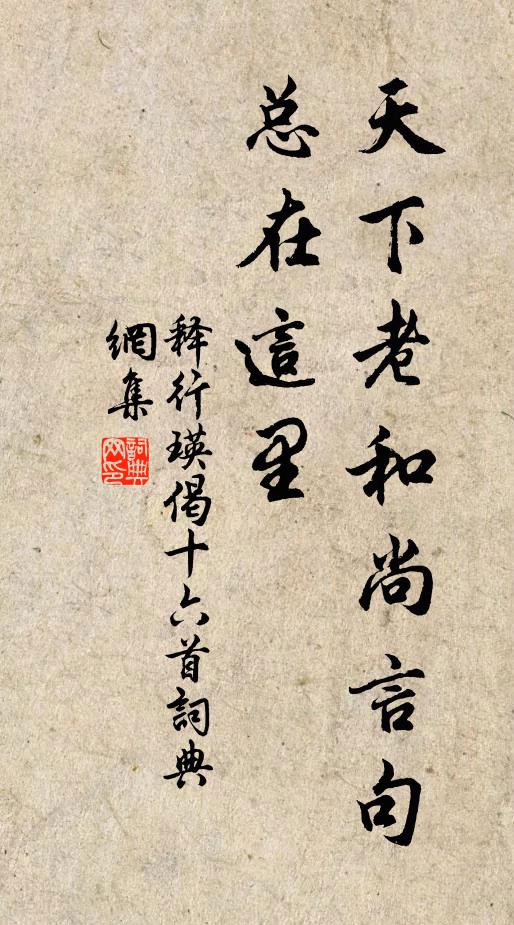 天下老和尚言句
总在這里
释行瑛偈十六首詞典
網集
詞典
网印